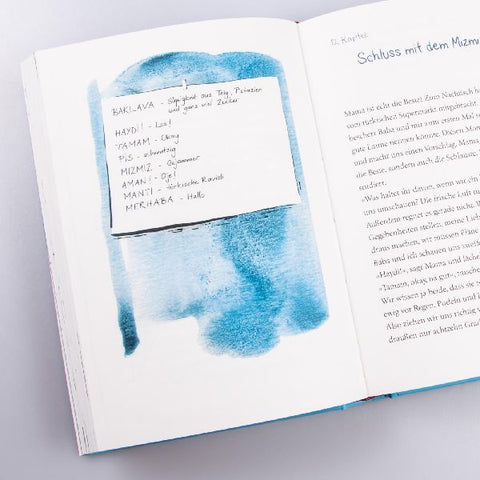 BAKLAVA - Süßigkeit aus Teig, Pistazien
und ganz viel Zucker
HAYDI! - Los!
TAMAM - Okay
PIS - schmutzig
MIZMIZ - Gejammer
AMAN! - Oje!
MANTI - türkische Ravioli
MERHABA - Hallo
12. Kapitel
Schluss mit dem Mizmi
Mama ist echt die Beste! Zum Nachtisch h
vom türkischen Supermarkt mitgebracht.
beschert Baba und mir zum ersten Mal s
gute Laune nennen könnte. Diesen Mom
und macht uns einen Vorschlag. Mama
die Beste, sondern auch die Schlauste.
studiert.
»Was haltet ihr davon, wenn wir ein
uns umschauen? Die frische Luft tu
Außerdem regnet es gerade nicht. D
Gegebenheiten stellen, meine Lieb
draus machen, wir müssen Pläne
Baba und ich schauen uns zweife
»Haydi!«, sagt Mama und lächel
»Tamam, okay, na gut«, nusche
Wir wissen ja beide, dass sie
ewig vor Regen, Pudeln und
Also ziehen wir uns richtig
draußen nur achtzehn Grad